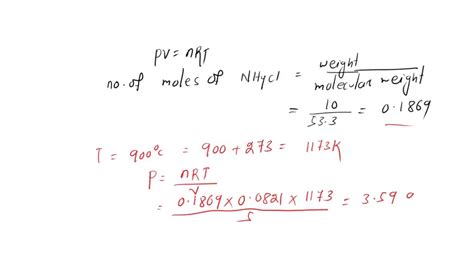 PV = nRT
no. of moles of NH4Cl = weight / molecular weight
= 10 / 53.3 = 0.1869
T = 900°C = 900 + 273 = 1173K
P = nRT / V
= 0.1869 x 0.0821 x 1173 / 5 = 3.59 a